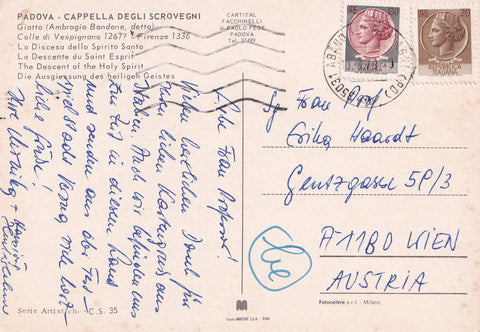 PADOVA - CAPPELLA DEGLI SCROVEGNI
Giotto (Ambrogio Bondone, detto)
Colle di Vespignano 1267? - Firenze 1336
La Discesa dello Spirito Santo
La Descente du Saint Esprit
The Descent of the Holy Spirit
Die Ausgiessung des heiligen Geistes
CARTITAL
FACCHINELLI
di PAOLO PEGE
PADOVA
Tel. 27499
35031 ABANO
(PD)
Liebe Frau Professor!
Vielen herzlichen Dank für
Ihren lieben Kartengruss aus
Italien. Auch wir befinden uns
zur Zeit in diesem Land
und senden aus der Fest-
und Stadt Verona viele herz-
liche Grüße!
Ihre Ulrike +
Sg Frau Prof.
Erika Haardt
Gentzgasse 5P/3
A 1180 WIEN
AUSTRIA
be
Serie Artistiche - C.S. 35
Fotocelere s.r.l. - Milano